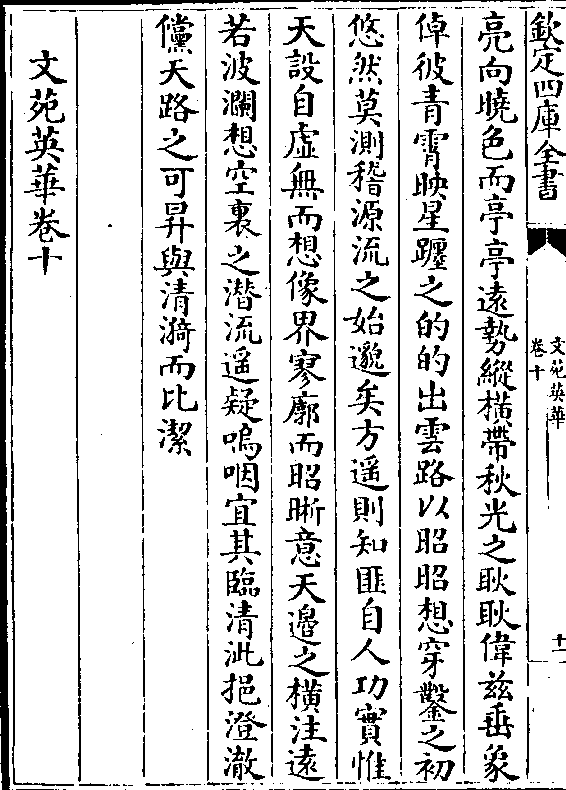 欽定四庫全書
文苑英華
卷十
十一
亮向曉色而亭亭遠勢縱橫帶秋光之耿耿偉兹垂象
倬彼青霄映星躔之的的出雲路以昭昭想穿鑿之初
悠然莫測稽源流之始邈矣方遥則知匪自人功實惟
天設自虚無而想像界寥廓而昭晰意天邉之橫注遠
若波瀾想空裏之潜流遥疑嗚咽宜其臨清泚挹澄澈
儻天路之可昇與清漪而比潔
文苑英華卷十